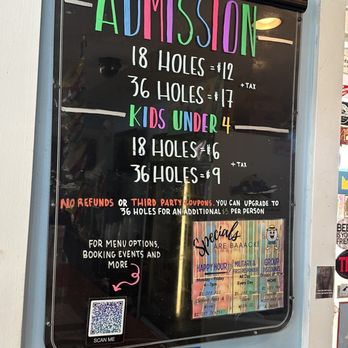 ADMISSION
18 HOLES = $12
+ TAX
36 HOLES = $17
KIDS UNDER 4
18 HOLES = $6
+ TAX
36 HOLES = $9
NO REFUNDS OR THIRD PARTY COUPONS. YOU CAN UPGRADE TO
36 HOLES FOR AN ADDITIONAL PER PERSON
FOR MENU OPTIONS,
BOOKING EVENTS AND
MORE
SCAN ME
Specials
ARE BAAACK!
HAPPY HOUR
MILITARY &
GROUP